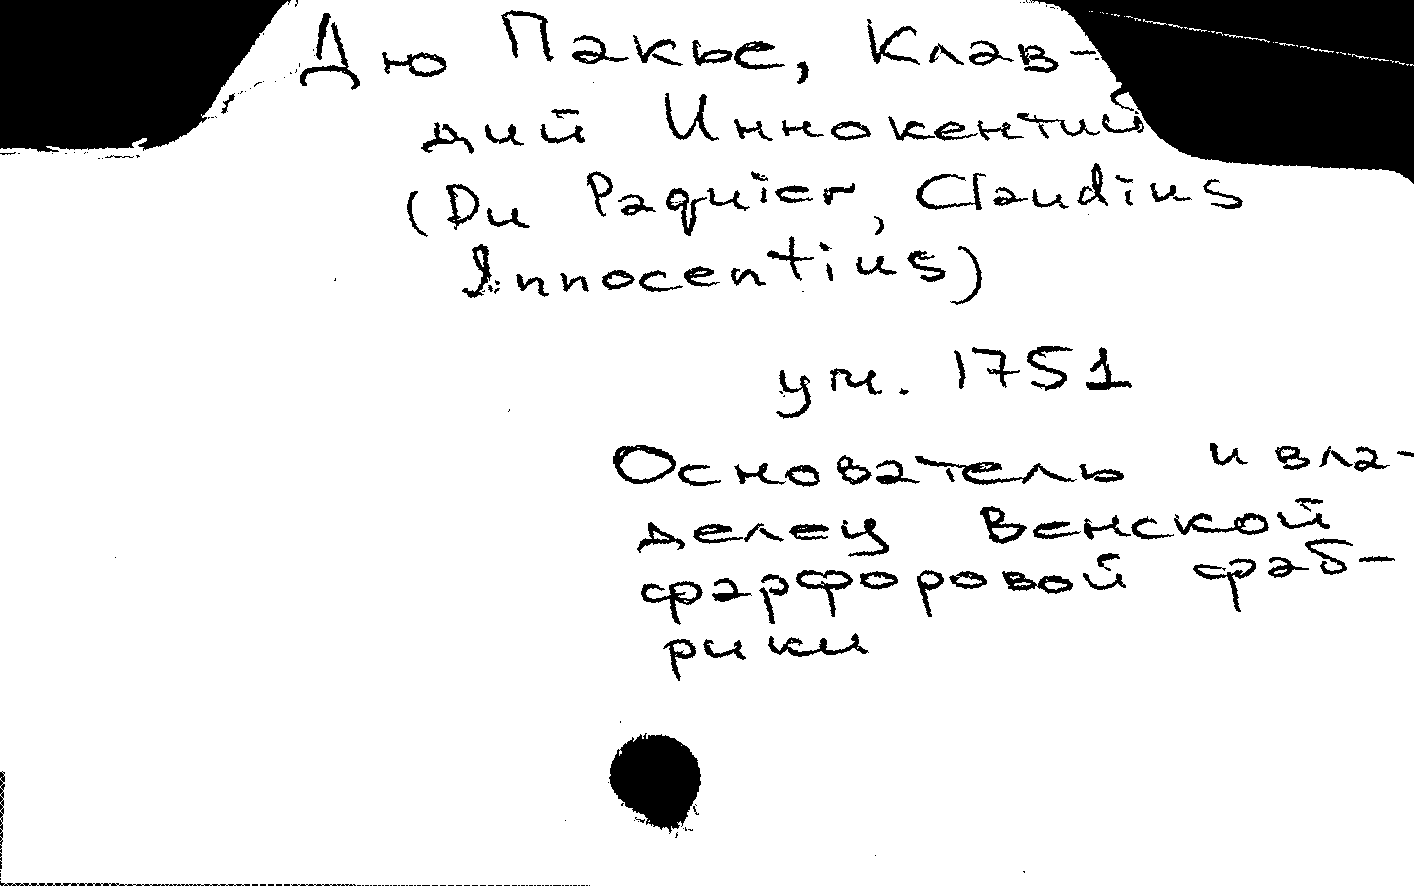 Дю Пакье, Клав-
дий Иннокентий
(Du Paquier, Claudius
Innocentius)
ум. 1751
Основатель и вла-
делец Венской
фарфоровой фаб-
рики